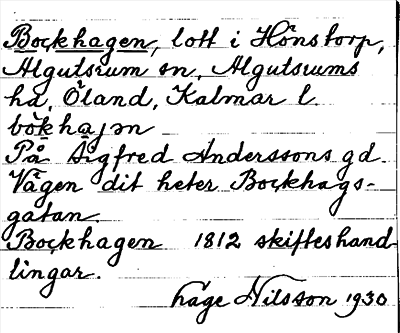 Bockhagen, lott i Hönstorp,
Algutsrum sn, Algutsrums
hd, Öland, Kalmar l.
bökhajən
På Sigfred Anderssons gd.
Vägen dit heter Bockhags-
gatan.
Bockhagen 1812 skifteshand-
lingar.
håge Nilsson 1930